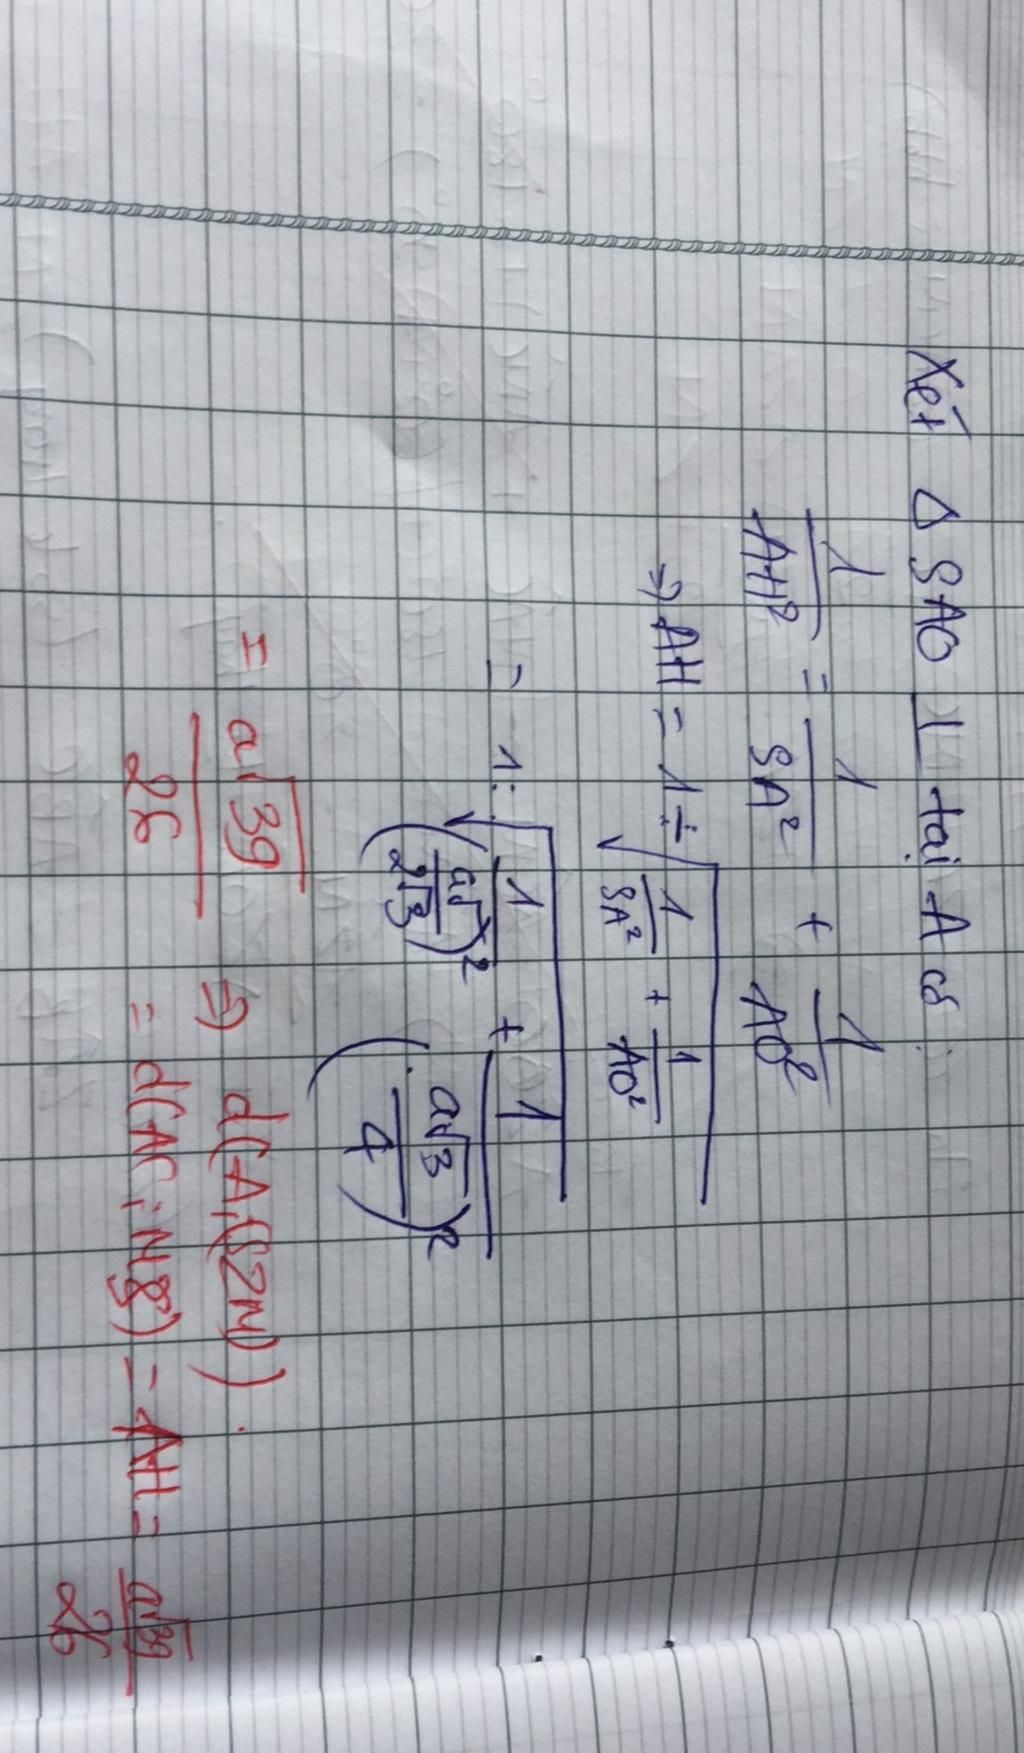 Xét Δ SAO ⊥ tại A có:
1/AH² = 1/SA² + 1/AO²
=> AH = 1 : √(1/SA² + 1/AO²)
= 1 : √(1/(a/2√3)² + 1/(a√3/4)²)
= a√39/26 => d(A,(SZM)).
= d(AC; MS) = AH = a√39/26